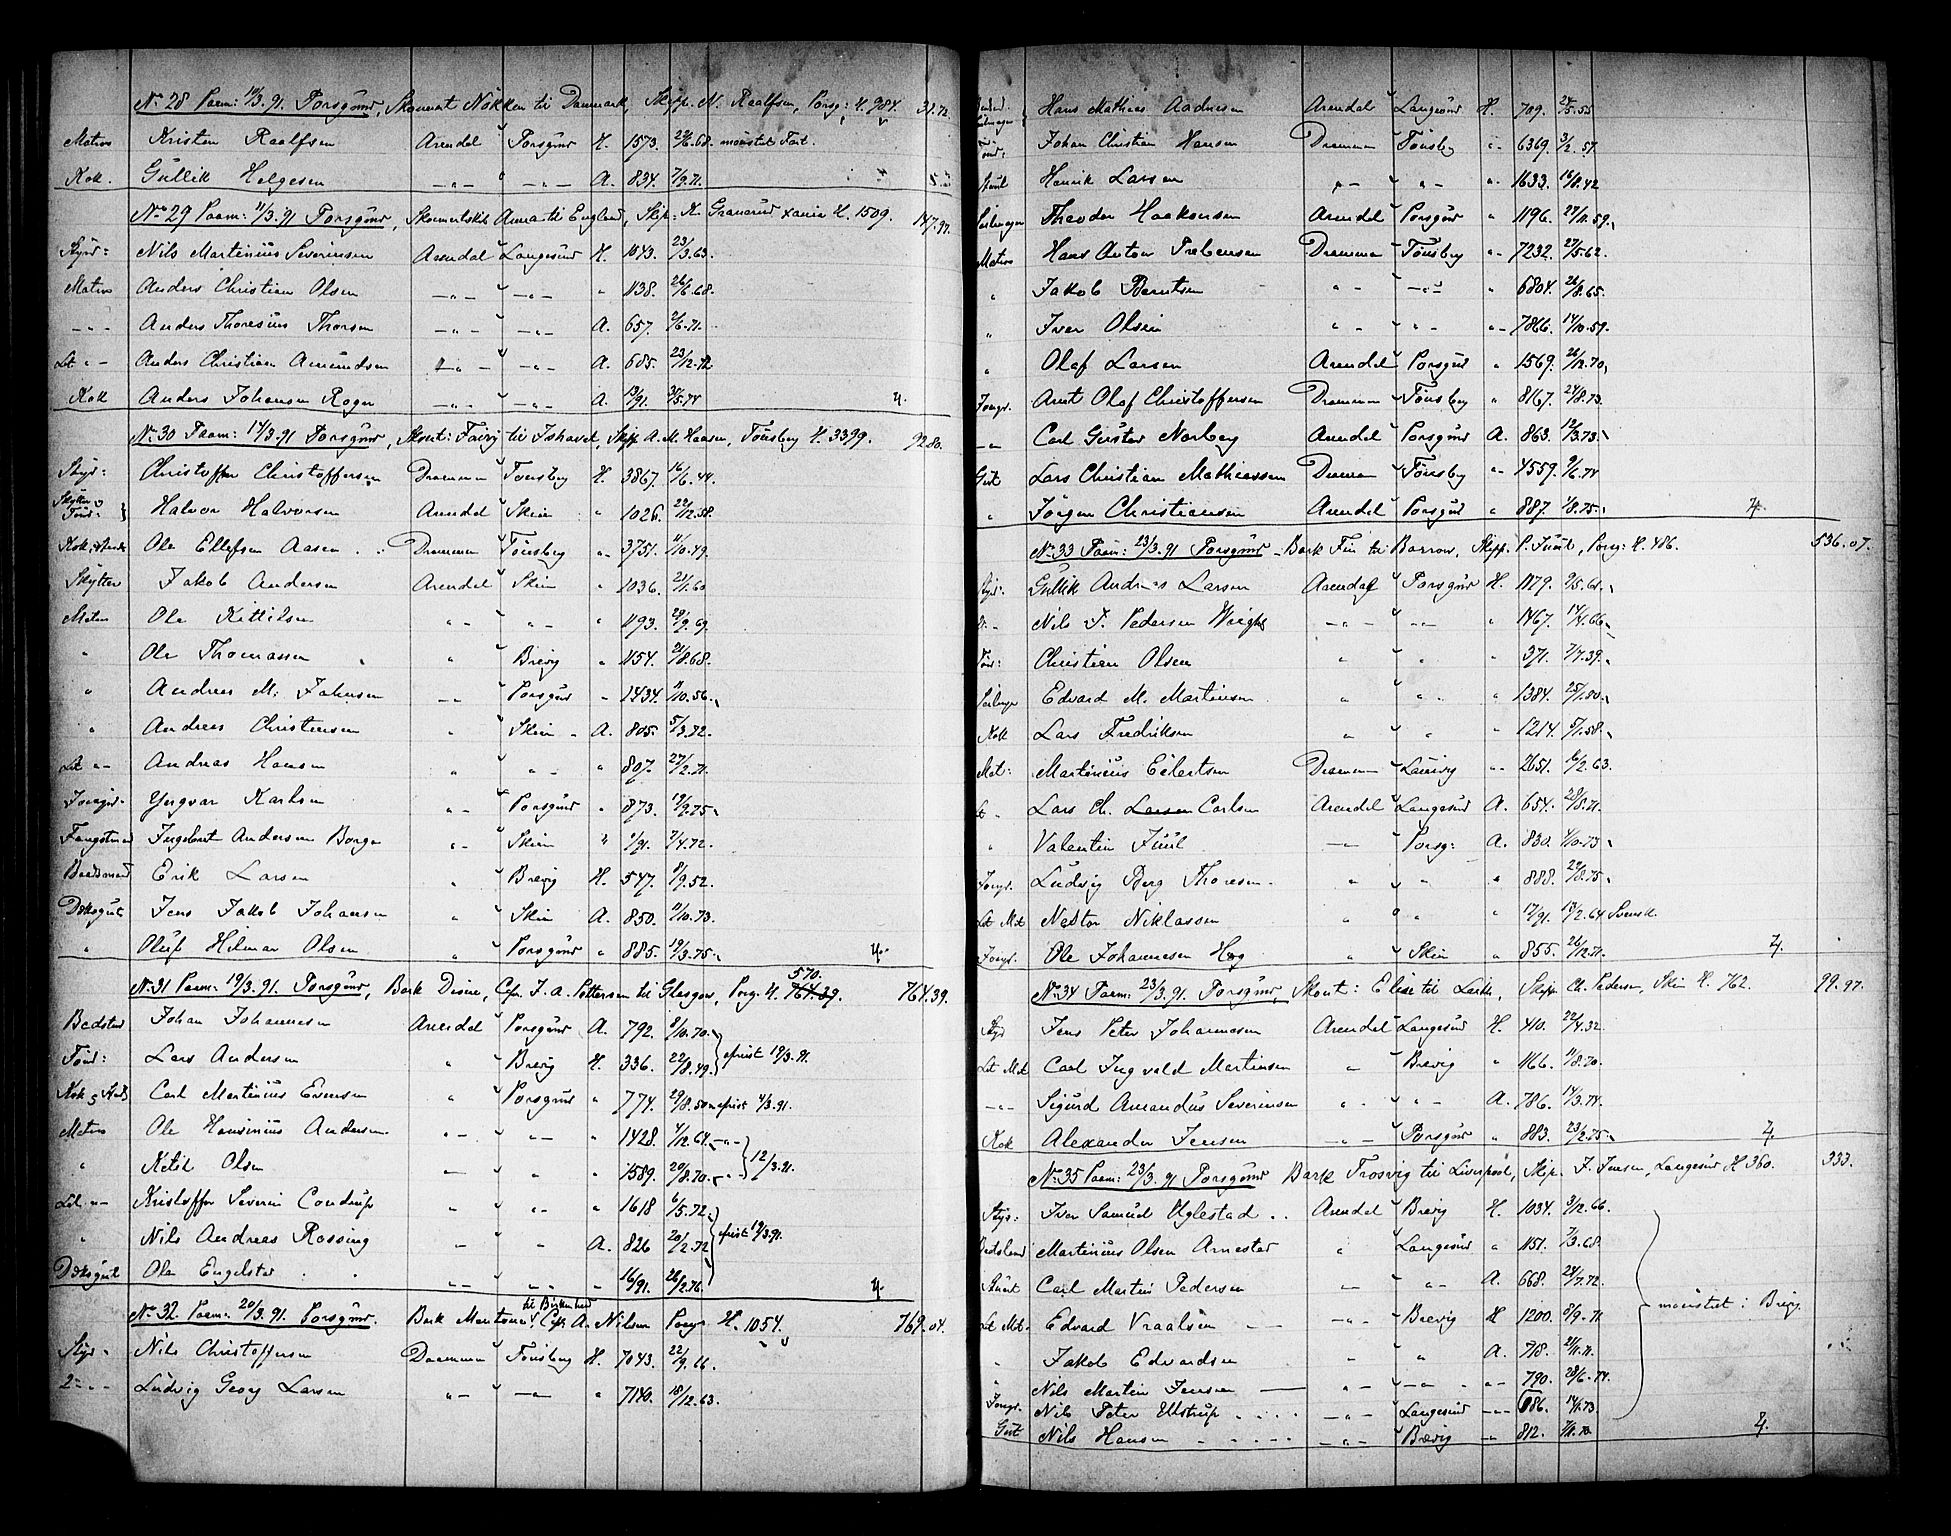 No 28 Paam: 10/3.91. Porsgund, Skonnert Nökken til Danmark, Skipp. N. Raalfsen, Porsg: H. 984. 31.72
Matros Kristen Raalfsen Arendal Porsgund H. 1573. 24/6.68. mönstret Fart.
Kok. Gullik Helgesen —„— —„— A. 834. 7/9.71.
No 29 Paam: 11/3.91 Porsgund, Skonnertskib Anna til England, Skip: N. Graverud H. 1509. 147.97.
Styrd: Nils Martinius Severinsen Arendal Langesund H. 1043. 23/3.63.
Matros Anders Christian Olsen —„— —„— „ 1138. 26/6.68.
—„— Anders Thoresius Thorsen —„— —„— A. 657. 2/6.71.
Let „— Anders Christian Amundsen —„— —„— A. 685. 23/12.72
Kok Anders Johansen Roger —„— —„— A. 13/91. 30/5.74 4.
No 30 Paam: 14/3.91 Porsgund, Skont: Fairy til Ishavet, Skipp A. M. Haasen, Tönsberg H. 3399. 92.80.
Styd: Christoffer Christoffersen Drammen Tönsberg H. 3867. 16/6.44.
Skytter & Tönd: Halvor Halvorsen Arendal Skien „ 1026. 22/12.58.
Kok & Stuert Ole Ellefsen Aasen Drammen Tönsberg „ 3751. 11/10.49.
Skytter Jakob Andersen Arendal Skien „ 1036. 21/1.60
Matros Ole Kittilsen „ — „ — „ 1193. 29/9.69.
„ Ole Thomassen „ Brevig „ 1154. 21/8.68.
„ Andreas M. Johnsen —„ Porsgund „ 1434. 11/10.56.
„ Andreas Christensen „ Skien „ A. 805. 5/3.72.
Let „— Andreas Hansen „ „ — „ 807. 27/2.71.
Jongd. Yngvar Karlsen „ — Porsgund „ 873. 19/9.75
Fangstmand Ingebret Andersen Borge „ — Skien „ 1/91. 7/4.72.
Baadsmand Erik Larsen „ Brevig H. 547. 8/9.52.
Dæksgut Jens Jakob Johansen „ Skien A. 850. 11/10.73.
„ Oluf Hilmar Olsen „ Porsgund „ 885. 19/3.75. 4.
570.
No 31 Paam: 19/3.91. Porsgund, Bark Desire, Cptn J. A. Pettersen til Glasgow, Porsg. H. 764.39. 764.39.
Badstud Johan Johannesen Arendal Porsgund A. 792. 8/10.70.
Tönd: Lars Andersen „ Brevig H. 336. 22/8.49. afreist 19/3.91.
Kok & Stuert Carl Martinius Evensen „ Porsgund „ 774. 29/8.50 afreist 4/3.91.
Matros Ole Hansinius Andersen „ — „ — „ 1428. 4/12.64. —„—
„ Ketil Olsen — „ „ 1589. 20/8.70. 12/3.91.
Let. „— Kristoffer Severin Condrup „ „ — „ 1618 6/5.72.
„ Nils Andreas Rossing — „ A. 826 20/2.72 afreist 19/3.91.
Dæksgut Ole Engelstad „ — „ — „ 16/91. 26/2.76. 4.
til Birkenhead
No 32 Paam: 20/3.91. Porsgund. Bark Mentone, Cptn A. Nilsen Porsgr H. 1054. 769.04.
Styd. Nils Christoffersen Drammen Tönsberg H. 7043. 22/9.66.
2den „— Ludvig Georg Larsen „ — —„— „ 7140. 18/12.63.
Hans Mathias Aadnesen Arendal Langesund H. 709. 24/5.55
Tönd: Johan Christian Hansen Drammen Tönsberg „ 6369. 3/2.57.
Stuert Henrik Larsen „ — „ — „ 1633. 16/8.42
Seilmager Theodor Haakensen Arendal Porsgund „ 1196. 27/11.59.
Matros Hans Anton Prebensen Drammen Tönsberg „ 7232. 27/5.62.
„ Jakob Berntsen „ — —„— „ 6804. 26/8.65.
„ Iver Olsen „ — „ — „ 7866. 14/10.59.
„ Olaf Larsen Arendal Porsgund „ 1569. 26/12.70,
Jongd. Arnt Olaf Christoffersen Drammen Tönsberg „ 8167. 24/8.73.
—„ Carl Gustav Norberg Arendal Porsgund A. 863. 12/3.73.
Gut Lars Christian Mathiassen Drammen Tönsberg „ 4559. 9/6.74
„ Jörgen Christiansen Arendal Porsgund „ 887. 1/8.75. 4.
No 33 Paam: 23/3.91 Porsgund — Bark Fin til Barrow, Skipp. P. Juul, Porsg: H. 486. 536.07.
Styd: Gullik Andreas Larsen Arendal Porsgund H. 1179. 9/5.61.
2. — Nils J. Pedersen Wright —„— „ — „ 1467. 14/4.66.
Tönd: Christian Olsen „ „ „ 371. 7/7.39.
Seilmager Edvard M. Martinsen „ „ „ 1384. 25/1.50.
Kok Lars Fredriksen „ „ „ 1214. 5/1.58.
Mat: Martinius Eilertsen Drammen Laurvig „ 2651. 6/2.63.
Let „ Lars Ch. Larsen Carlsen Arendal Langesund A. 654. 28/8.71.
„ Valentin Juul —„ Porsg: A. 830. 4/10.73.
Jongd. Ludvig Berg Thoresen. „ „ „ 888. 29/8.75.
Let Mat Nestor Niklassen „ „ „ 17/91. 13/2.64 Svensk.
Jongd. Ole Johannesen Hog „ Skien „ 855. 26/12.71. 4.
No 34 Paam: 23/3.91. Porsgund, Skont: Elise til Leith, Skipp Ch. Pedersen, Skien H. 762. 99.97.
Styd Jens Peter Johannesen Arendal Langesund H. 410. 22/4.32
Let Mat Carl Ingvald Martinsen „ Brevig „ 1166. 11/8.70.
—„— Sigurd Amandus Severinsen „ — „ — A. 786. 14/3.74.
Kok Alexander Jensen —„— Porsgund „ 883. 23/2.75. 4.
No 35 Paam: 23/3.91 Porsgund Bark Frosvig til Liverpool, Skip. J. Jensen, Langesund H 360. 333.
Styd: Iver Samuel Uglestad .. Arendal Brevig H. 1034. 3/12.66.
Badstud Martinius Olsen Arnestad „ Langesund „ 1151. 7/3.68.
Stuert Carl Martin Pedersen — „ — A. 668. 24/7.72.
Let Mat. Edvard Vraalsen „ — Brevig H 1200. 8/9.71 mönstret i Brevig.
„ Jakob Edvardsen „ „ A. 718. 21/11.71.
„ Nils Martin Jensen — „ — —„— „ 790. 28/6.74.
Jongd. Nils Peter Ellstrup —„— Langesund —„— 686. 14/1.73.
Gut Nils Hansen —„— Brevig „ 812. 7/11.70 4.